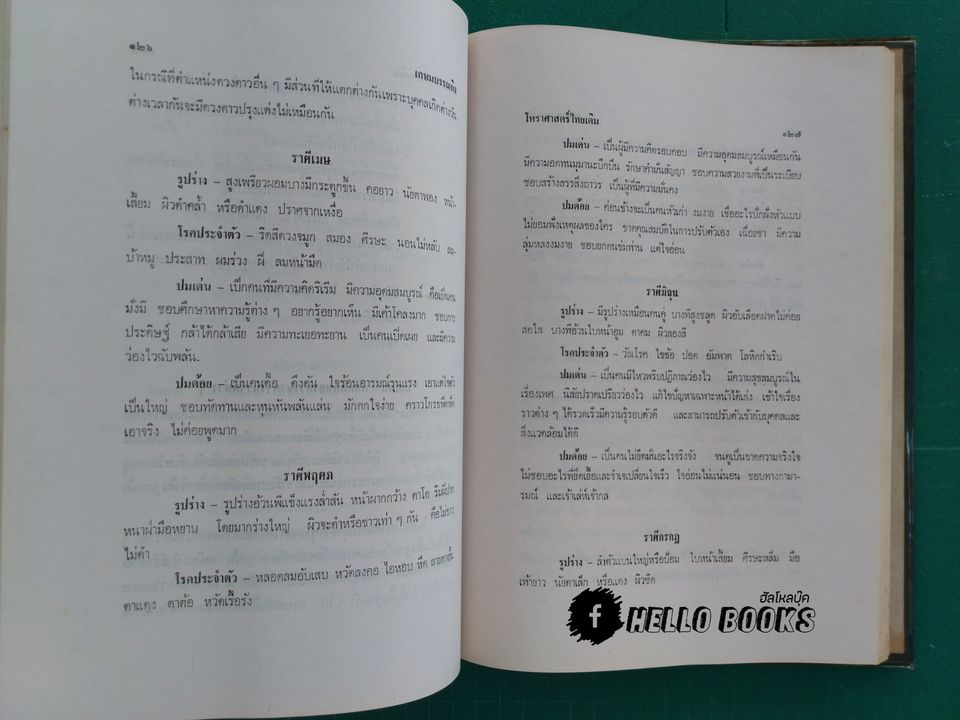 ๑๒๖
เกษมบรรณกิจ
ในกรณีที่ตำแหน่งดวงดาวอื่น ๆ มีส่วนที่ให้แตกต่างกันเพราะบุคคลเกิดต่างวัน
ต่างเวลากันจะมีดวงดาวปรุงแต่งไม่เหมือนกัน
ราศีเมษ
รูปร่าง – สูงเพรียวผอมบางมีกระดูกขึ้น คอยาว นัยตาพอง หน้า-
เสี้ยม ผิวดำคล้ำ หรือดำแดง ปราศจากเหงื่อ
โรคประจำตัว – ริดสีดวงจมูก สมอง ศีรษะ นอนไม่หลับ ลม-
บ้าหมู ประสาท ผมร่วง ฝี ลมหน้ามืด
ปมเด่น – เป็กคนที่มีความคิดริเริ่ม มีความอุดมสมบูรณ์ คือเป็นคน
มั่งมี ชอบศึกษาหาความรู้ต่าง ๆ อยากรู้อยากเห็น มีเค้าโคลงมาก ชอบการ
ประดิษฐ์ กล้าได้กล้าเสีย มีความทะเยอทะยาน เป็นคนเปิดเผย และมีความ
ว่องไวฉับพลัน.
ปมด้อย – เป็นคนดื้อ ดึงดัน ใจร้อนอารมณ์รุนแรง เอาแต่ใจตัว
เป็นใหญ่ ชอบทัดทานและหุนหันพลันแล่น มักตกใจง่าย คราวโกรธ
เอาจริง ไม่ค่อยพูดมาก
ราศีพฤศภ
รูปร่าง – รูปร่างอ้วนพีแข็งแรงล่ำสัน หน้าผากกว้าง ตาโต ริมฝีปาก
หนาฝ่ามือหยาบ โดยมากร่างใหญ่ ผิวจะดำหรือขาวเท่า ๆ กัน คือไม่ขาว
ไม่ดำ
โรคประจำตัว – หลอดลมอับเสบ หวัดลงคอ ไอหอบ หืด
ตาแดง ตาต้อ หวัดเรื้อรัง
โหราศาสตร์ไทยเดิม
๑๒๗
ปมเด่น – เป็นผู้มีความคิดรอบคอบ มีความอุดมสมบูรณ์เหมือนกัน
มีความอดทนมุมานะบึกบึน รักษาคำมั่นสัญญา ชอบความสวยงามที่เป็นระเบียบ
ชอบสร้างสรรสิ่งถาวร เป็นผู้ที่มีความมั่นคง
ปมด้อย – ค่อนข้างจะเป็นคนหัวเก่า งมงาย เชื่ออะไรปักฝังหัวแบบ
ไม่ยอมฟังเหตุผลของใคร ขาดคุณสมบัติในการปรับตัวเอง เฉื่อยชา มีความ
ลุ่มหลงงมงาย ชอบยกตนข่มท่าน แต่ใจอ่อน
ราศีมิถุน
รูปร่าง – มีรูปร่างเหมือนคนคู่ บางทีสูงชลูด ผิวอับเลือดฝาดไม่ค่อย
สดใส บางทีอ้วนใบหน้าอูม ตาคม ผิวสองสี
โรคประจำตัว – วัณโรค ไขข้อ ปอด อัมพาต โลหิตกำเริบ
ปมเด่น – เป็นคนมีไหวพริบปฏิภาณว่องไว มีความสุขสมบูรณ์ใน
เรื่องเพศ นิสัยปราดเปรียวว่องไว แก้ไขปัญหาเฉพาะหน้าได้เก่ง เข้าใจเรื่อง
ราวต่าง ๆ ได้รวดเร็วมีความรู้รอบตัวดี และสามารถปรับตัวเข้ากับบุคคลและ
สิ่งแวดล้อมได้ดี
ปมด้อย – เป็นคนไม่ยึดมั่นอะไรจริงจัง ชนดูเป็นขาดความจริงใจ
ไม่ชอบอะไรที่ยืดเยื้อและจำเจเปลี่ยนใจเร็ว ใจอ่อนไม่แน่นอน ชอบทางกามา-
รมณ์ และเจ้าเล่ห์เจ้ากล
ราศีกรกฎ
รูปร่าง – ลำตัวแบนใหญ่หรือป้อม ใบหน้าเสี้ยม ศีรษะหลิ่ม มือ
เท้ายาว นัยตาเล็ก หรือแดง ผิวซีด
ฮัลโหลบุ๊ค
f HELLO BOOKS